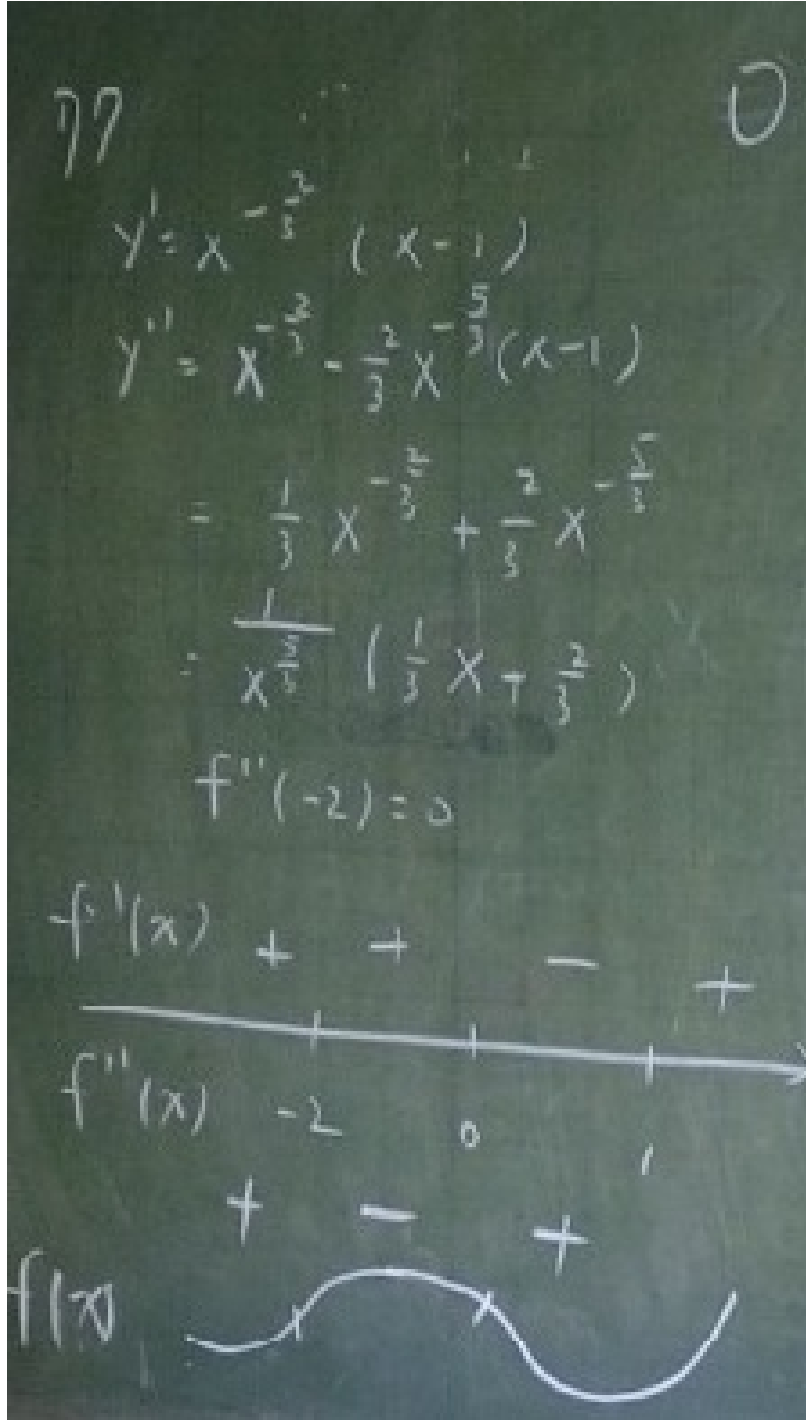 77 0
y' = x^{-\frac{2}{3}} (x-1)
y'' = x^{-\frac{2}{3}} - \frac{2}{3} x^{-\frac{5}{3}} (x-1)
= \frac{1}{3} x^{-\frac{2}{3}} + \frac{2}{3} x^{-\frac{5}{3}}
= \frac{1}{x^{\frac{5}{3}}} ( \frac{1}{3} x + \frac{2}{3} )
f''(-2) = 0
f'(x) + + - +
f''(x) -2 0 1
+ - +
f(x)